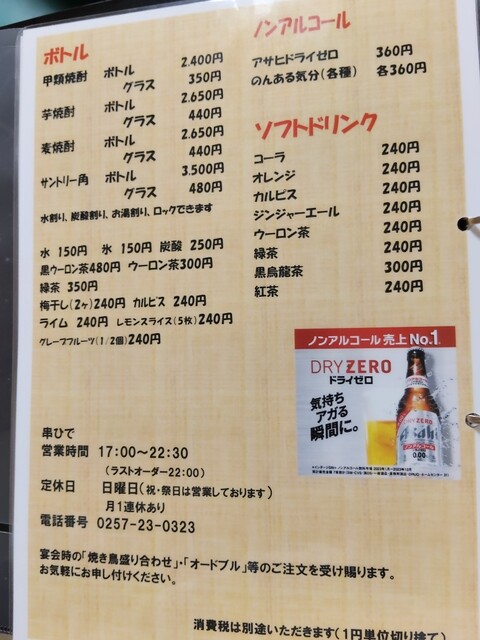 ボトル
甲類焼酎 ボトル 2.400円
グラス 350円
芋焼酎 ボトル 2.650円
グラス 440円
麦焼酎 ボトル 2.650円
グラス 440円
サントリー角 ボトル 3.500円
グラス 480円
水割り、炭酸割り、お湯割り、ロックできます
水 150円 氷 150円 炭酸 250円
黒ウーロン茶480円 ウーロン茶300円
緑茶 350円
梅干し(2ヶ)240円 カルピス 240円
ライム 240円 レモンスライス(5枚)240円
グレープフルーツ(1/2個)240円
ノンアルコール
アサヒドライゼロ 360円
のんある気分(各種) 各360円
ソフトドリンク
コーラ 240円
オレンジ 240円
カルピス 240円
ジンジャーエール 240円
ウーロン茶 240円
緑茶 240円
黒烏龍茶 300円
紅茶 240円
ノンアルコール売上No.1
DRY ZERO
ドライゼロ
気持ち
アガる
瞬間に。
DRY ZERO
Asahi
0.00
串ひで
営業時間 17:00～22:30
(ラストオーダー22:00)
定休日 日曜日(祝・祭日は営業しております)
月1連休あり
電話番号 0257-23-0323
宴会時の「焼き鳥盛り合わせ」・「オードブル」等のご注文を受け賜ります。
お気軽にお申し付けください。
消費税は別途いただきます(1円単位切り捨て)